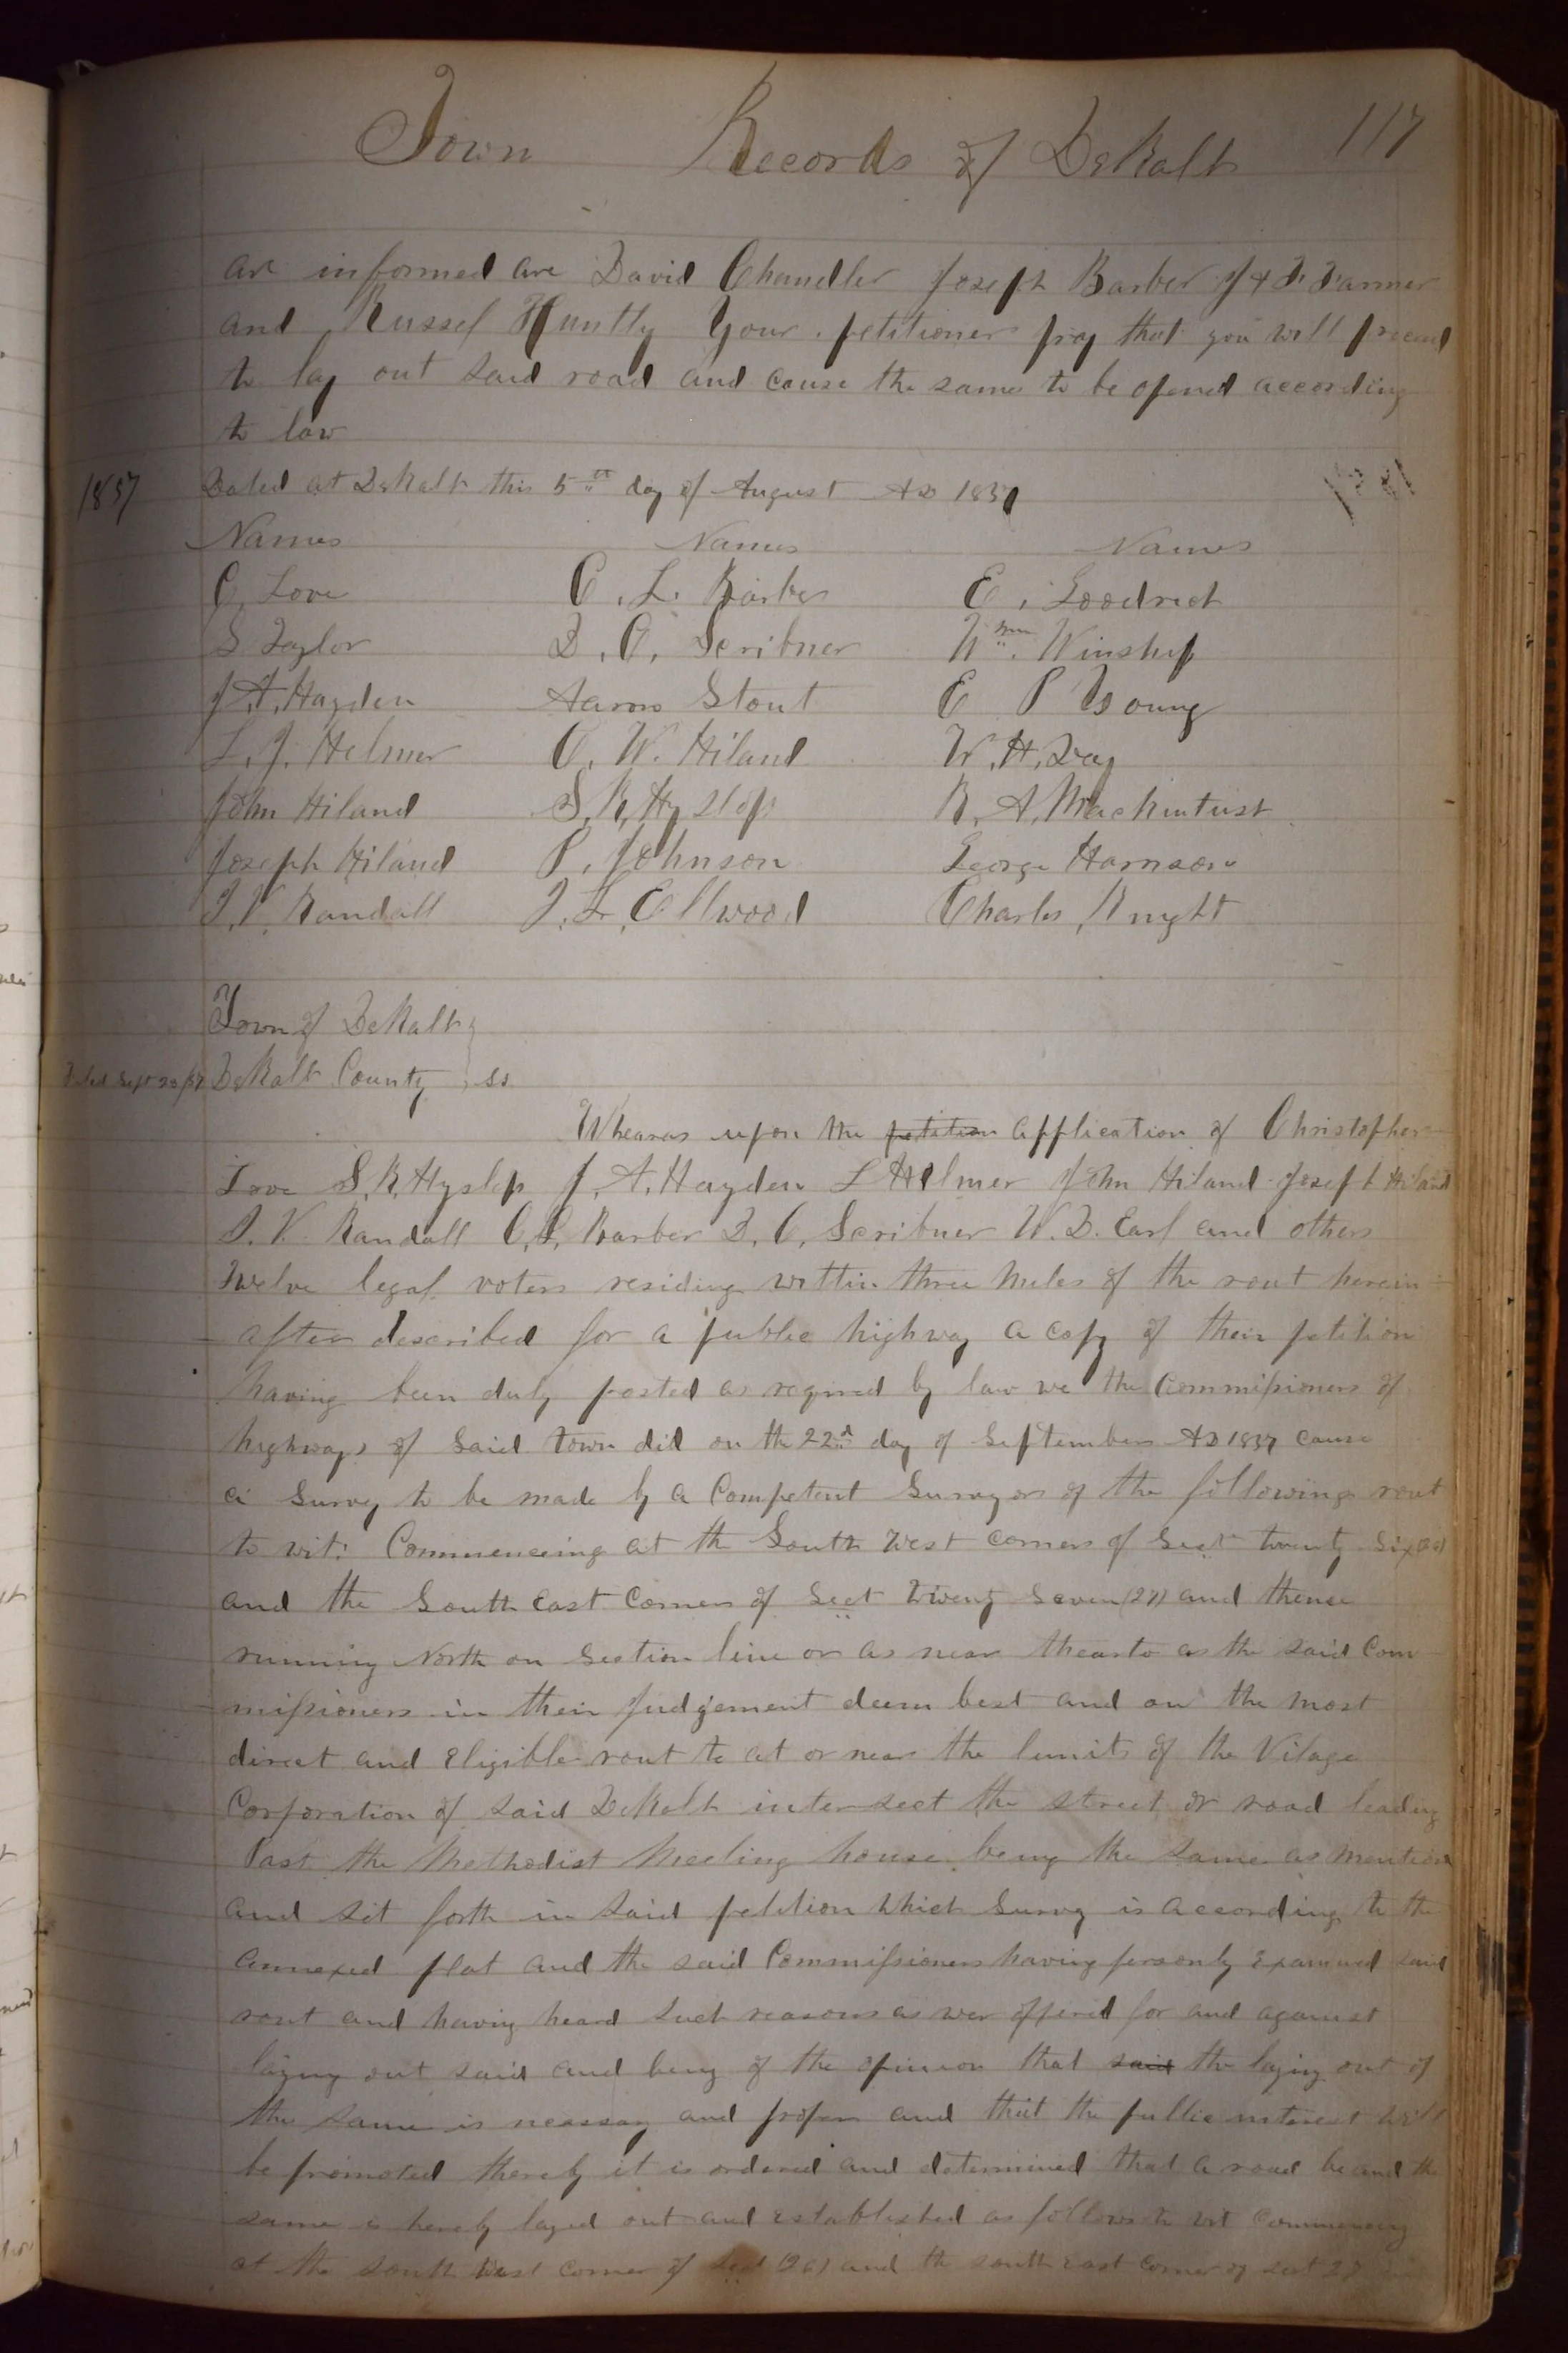 Town Records of DeKalb 117
are informed are David Chandler Joseph Barber J & D Farmer
and Russel Huntly Your petitioners pray that you will proceed
to lay out said road and cause the same to be opened according
to law
1857 Dated at DeKalb this 5th day of August AD 1857
Names Names Names
C. Love C. L. Barber E. Goodrich
S Taylor D. C. Scribner Wm. Winship
J. A. Hayden Aaron Stout E P Young
L. J. Helmer C. W. Hiland W. H. Day
John Hiland S. K. Hyslop R. A. Mackintust
Joseph Hiland P. Johnson George Harrison
J. V. Randall J. L. Ellwood Charles Knight
Town of DeKalb
Filed Sept 23/57 DeKalb County ss
Whearas upon the petition application of Christopher
Love S. K. Hyslop J. A. Hayden L Helmer John Hiland Joseph Hiland
J. V. Randall C. L. Barber D. C. Scribner W. D. Earl and others
Twelve legal voters residing within three miles of the rout herein
after described for a public highway a copy of their petition
having been duly posted as required by law we the Commissioners of
highways of Said town did on the 22d day of September AD 1857 cause
a Survey to be made by a Competent Surveyor of the following rout
to wit: Commencing at the South West corner of Sect twenty Six (26)
and the South East Corner of Sect Twenty Seven (27) and thence
running North on Section line or as near thearto as the said Com
missioners in their judgement deem best and on the most
direct and Eligible rout to at or near the limits of the Vilage
Corporation of said DeKalb intersect the street or road leading
Past the Methodist Meeting house being the same as mention
and set forth in said petition which Survey is according to the
annexed plat and the said Commissioners having personly Examined said
rout and having heard such reasons as wer offered for and against
laying out said and being of the opinion that said the laying out of
the same is neassary and proper and that the public interest will
be promoted thereby it is ordered and determined that a road be and the
same is hereby layed out and established as follows to wit Commencing
at the south West corner of Sect (26) and the south east corner of sect 27